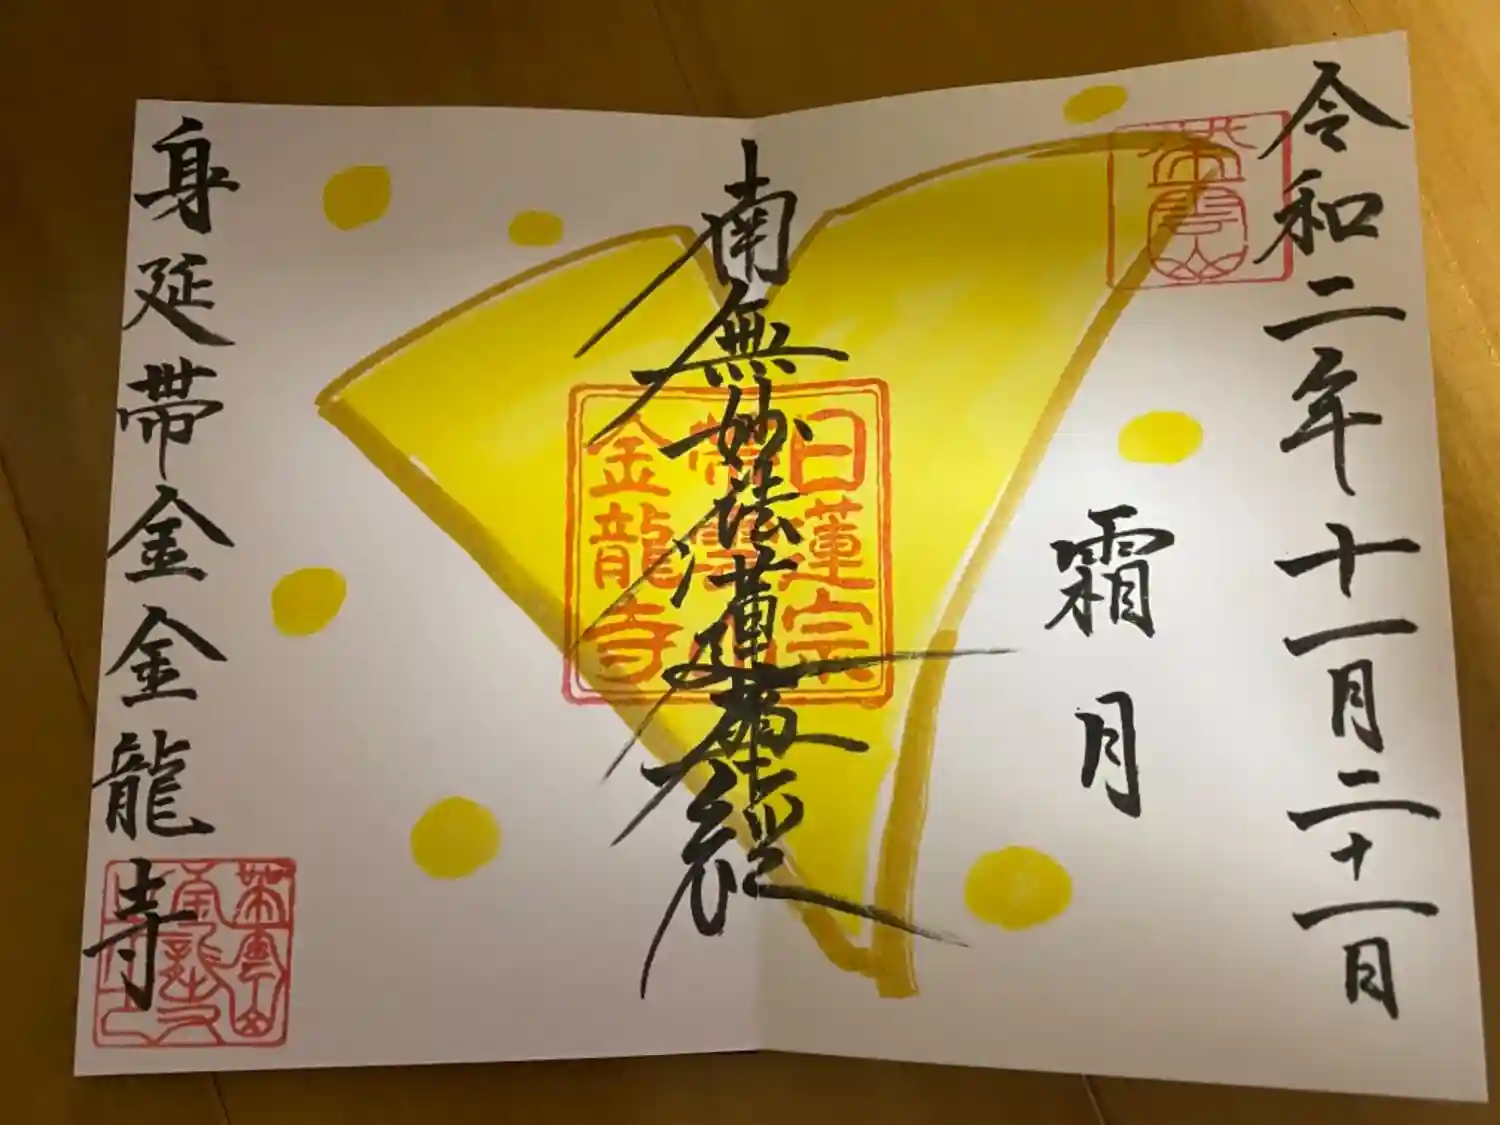 令和二年十一月二十一日
霜月
南無妙法蓮華経
日蓮宗
帯雲山
金龍寺
身延帯金金龍寺